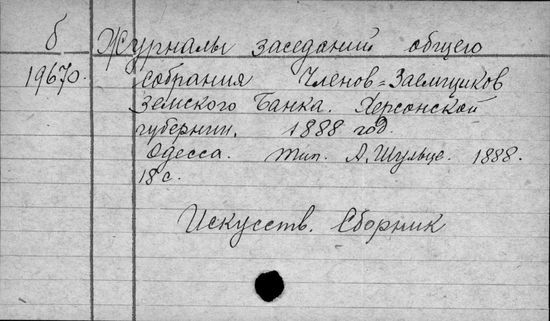 б Журналы заседаний общего
19670. собрания Членов=Заемщиков
Земского Банка. Херсонской
губернии. 1888 год.
Одесса. тип. А. Шульце. 1888.
18 с.
Искусств. Сборник